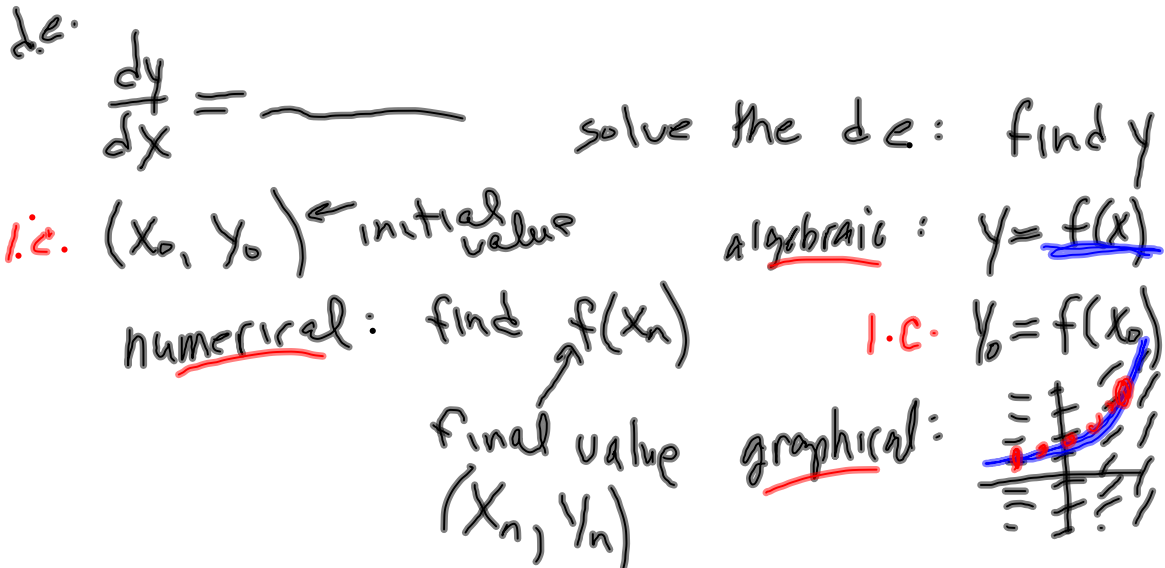 d.e.
dy/dx = ______
solve the d.e.: find y
i.c. (x₀, y₀) ← initial value
algebraic: y = f(x)
i.c. y₀ = f(x₀)
numerical: find f(xₙ)
final value
(xₙ, yₙ)
graphical: